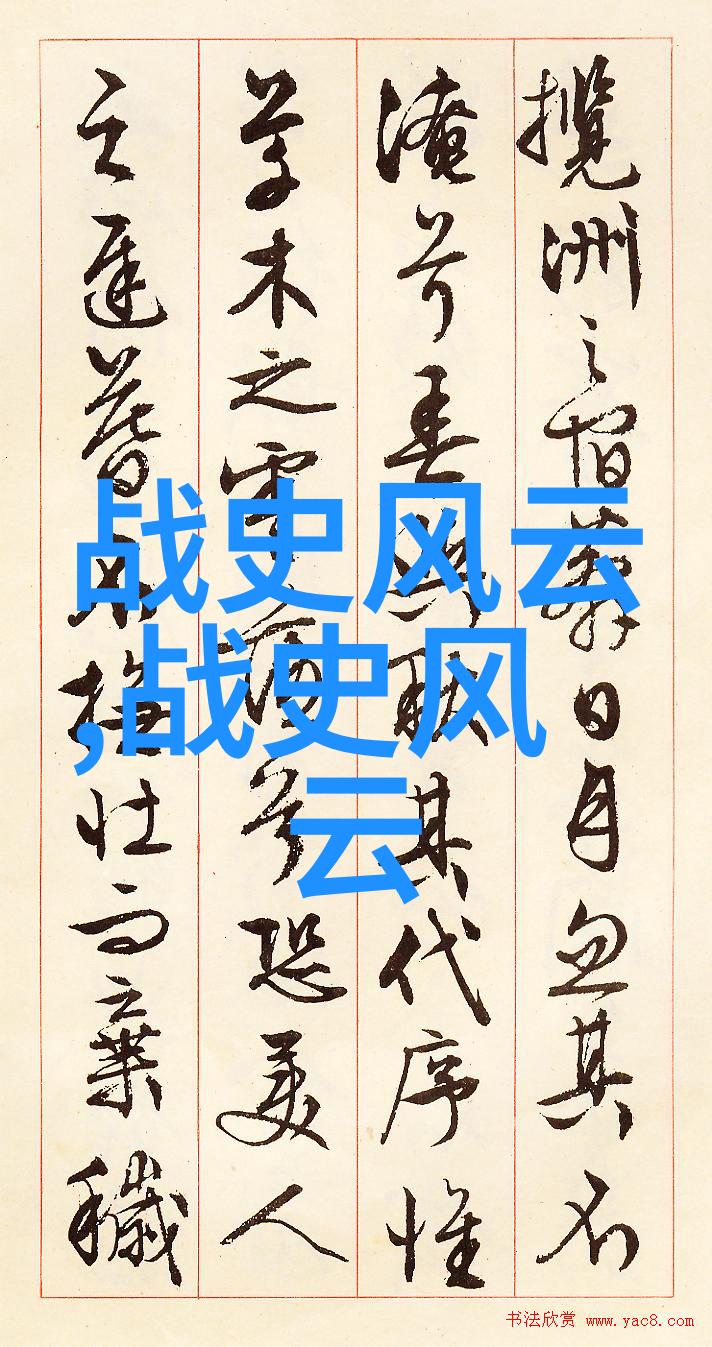 攬洲之宿莽日月忽其不
淹兮春與秋其代序惟
草木之零落兮恐美人
之遲暮不撫壯而棄穢
战史风云
,战史风
云
书法欣赏 www.yac8.com